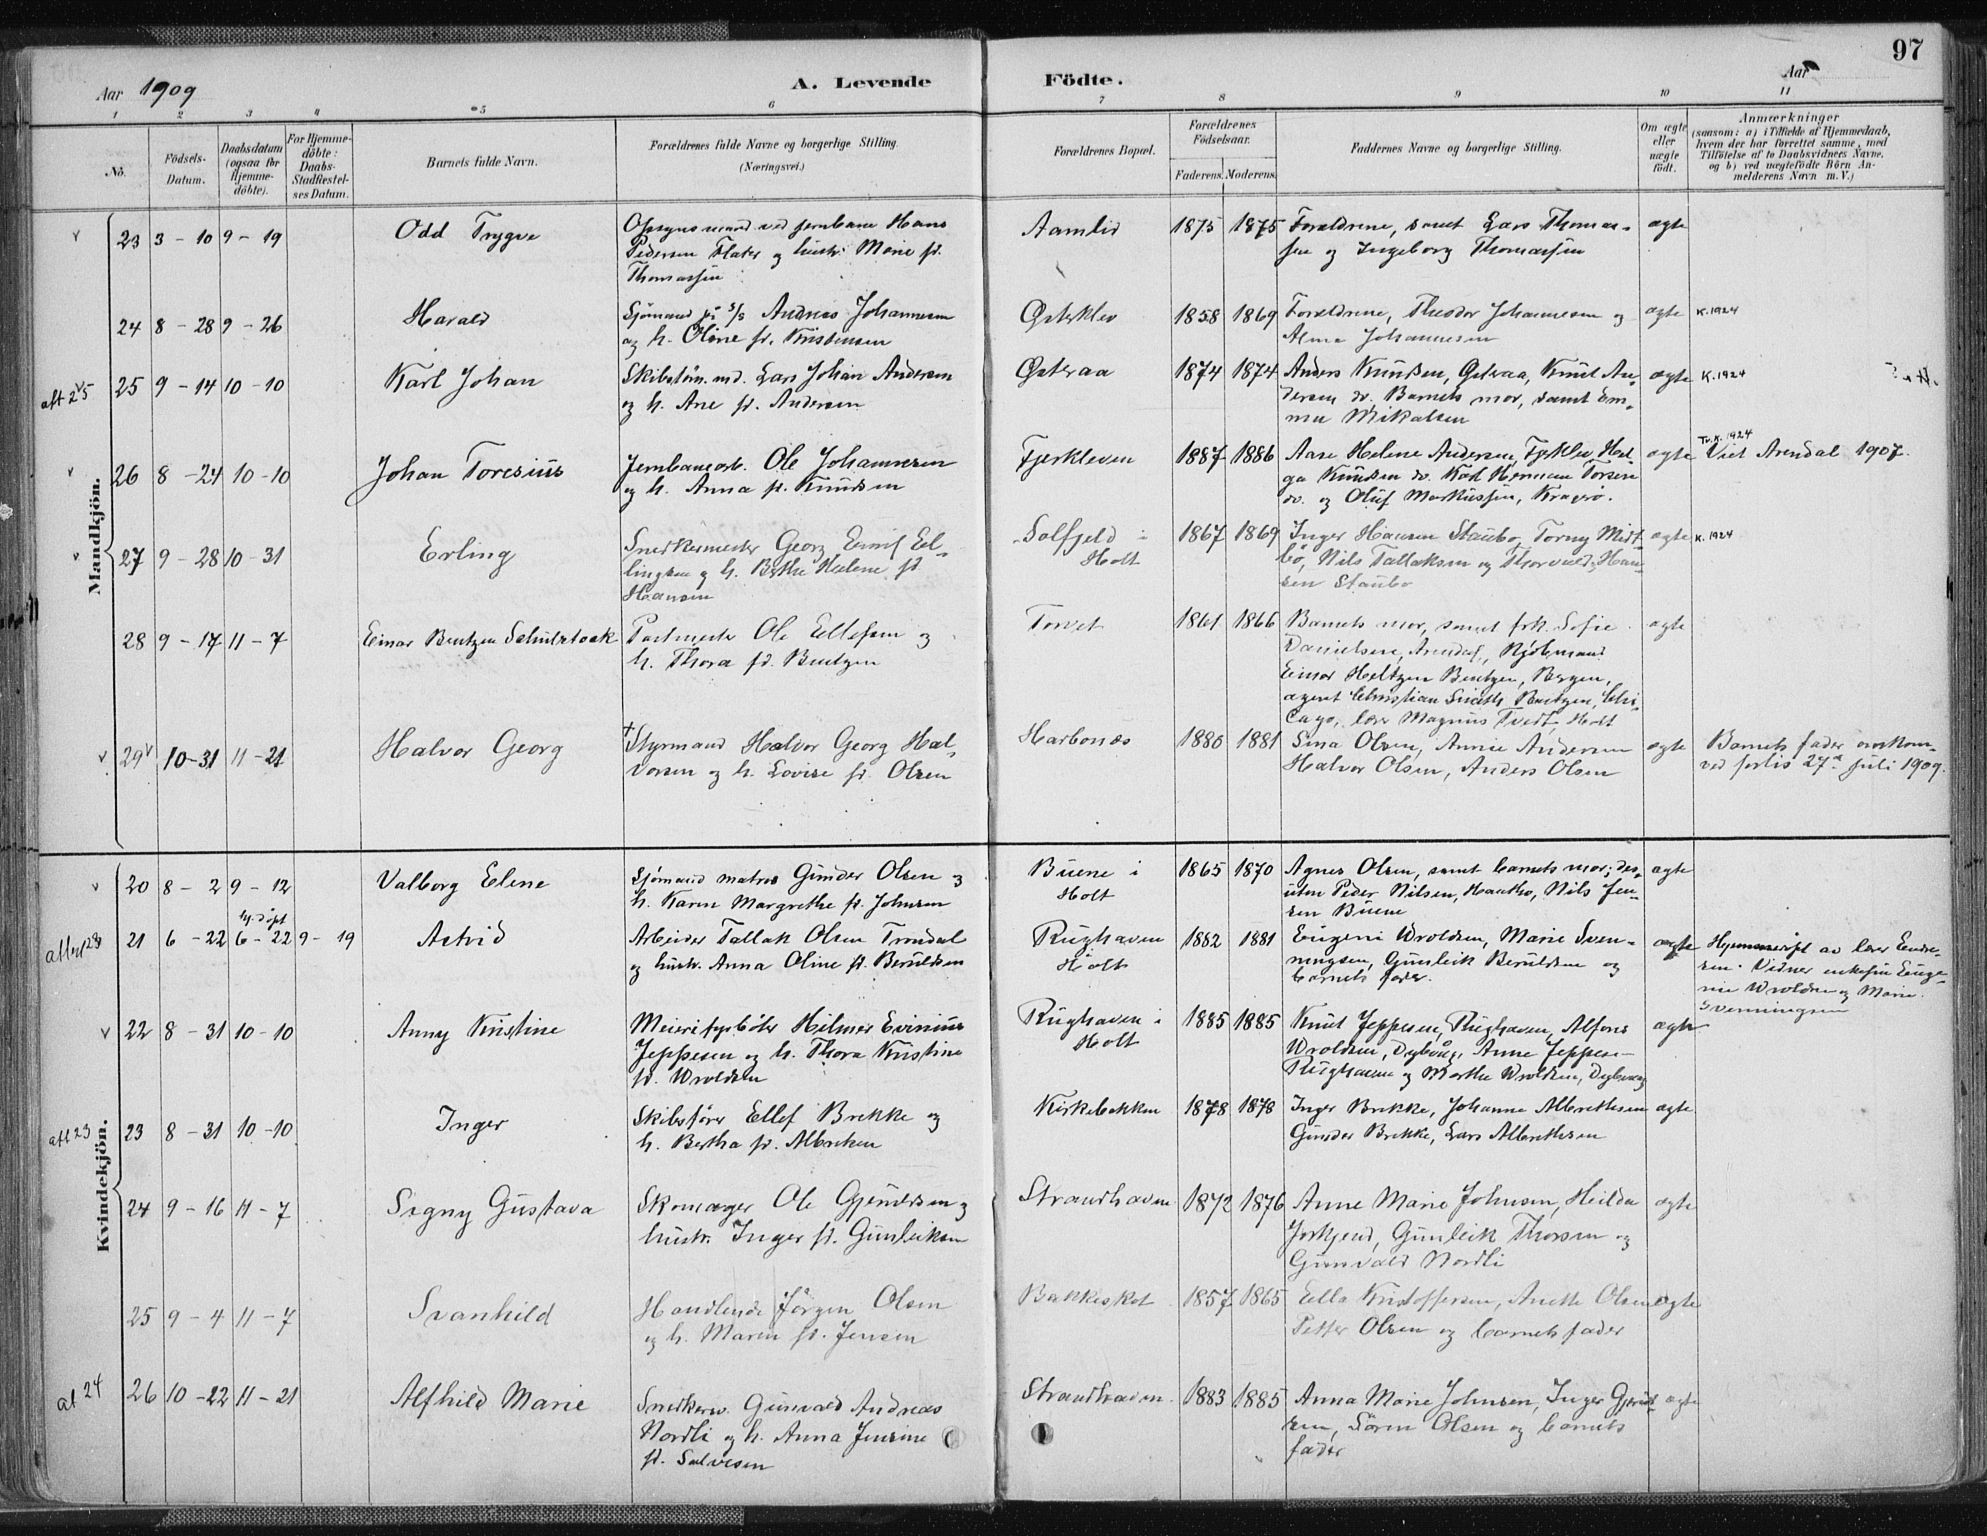 97
Aar 1909
A. Levende Födte.
Aar
1 2 3 4 5 6 7 8 9 10 11
No.
Födsels-Datum.
Daabsdatum (ogsaa för Hjemme-döbte).
For Hjemme-döbte: Daabs-Stadfæstel-ses Datum.
Barnets fulde Navn.
Forældrenes fulde Navne og borgerlige Stilling.
(Næringsvei.)
Forældrenes Bopæl.
Forældrenes Födselsaar.
Faderens. Moderens.
Faddernes Navne og borgerlige Stilling.
Om ægte eller uægte födt.
Anmærkninger
(saasom: a) i Tilfælde af Hjemmedaab, hvem der har forrettet samme, med Tilföielse af to Daabsvidners Navne, og b) ved uægtefödte Börn Anmelderens Navn m. V.)
Mandkjön.
23 3 - 10 9 - 19 Odd Trygve
Opsynsmand ved jernbane Hans
Pedersen Flater og hustr. Marie f.
Thomassen
Aamlid 1875 1875
Forældrene, samt Lars Thomas-
sen og Ingeborg Thomassen
ægte
24 8 - 28 9 - 26 Harald
Sjømand på s/s Andreas Johannesen
og h. Oline f. Kristensen
Østerklev 1858 1869
Forældrene, Theodor Johannesen og
Alma Johannesen
ægte K. 1924
25 9 - 14 10 - 10 Karl Johan
Skibstøm.md. Lars Johan Andersen
og h. Ane f. Andersen
Østeraa 1874 1874
Anders Knudsen, Østeraa, Knut An-
dersen do. Barnets mor, samt Em-
ma Mikalsen
ægte K. 1924
26 8 - 24 10 - 10 Johan Toresius
Jernbanearb. Ole Johannesen
og h. Anna f. Knudsen
Fjerkleven 1887 1886
Aase Helene Andersen, Fjerklev, Hel-
ga Knudsen do. Karl Herman Torsen
do. og Oluf Markussen, Kragerø.
ægte
K. 1924
Viet Arendal 1907.
27 9 - 28 10 - 31 Erling
Snedkermester Georg Emil Erl-
lingsen og h. Berthe Helene f.
Hansen
Solfjeld i
Holt
1867 1869
Inger Hansen Staubo, Torny Midt-
bö, Nils Tallaksen og Thorvald Han-
sen Staubo
ægte K. 1924
28 9 - 17 11 - 7 Einar Bentzen
Postmester Ole Ellefsen og
h. Thora f. Bentzen
Torvet 1861 1866
Barnets mor, samt frk. Sofie
Danielsen, Arendal, Kjøbmand
Einar Heltzen Bentzen, Bergen,
agent Christian Smith Bentzen, Chi-
cago, lærer Magnus Tvedt, Holt
ægte
29 10 - 31 11 - 21 Halvor Georg
† Styrmand Halvor Georg Hal-
vorsen og h. Lovise f. Olsen
Harbonæs 1880 1881
Sina Olsen, Annie Andersen
Halvor Olsen, Anders Olsen
ægte
Barnets fader omkom
ved forlis 27de juli 1909.
Kvindekjön.
20 8 - 2 9 - 12 Valborg Elene
Sjømand matros Gunder Olsen og
h. Karen Margrethe f. Johnsen
Buene i
Holt
1865 1870
Agnes Olsen, samt barnets mor; des-
uten Peder Nilsen, Nils Jen-
sen Buene
ægte
hj. døpt
21 6 - 22 6 - 22 9 - 19 Astrid
Arbeider Tallak Olsen
og hustr. Anna Oline f. Beruldsen
Rughaven
Holt
1882 1881
Eugeni Wroldsen, Marie Sven-
ningsen, Gunleik Beruldsen og
barnets fader.
ægte
Hjemmedøpt av lærer Endre-
sen. Vidner enkefru Euge-
nie Wroldsen og Marie
Svenningsen
22 8 - 31 10 - 10 Anny Kristine
Meierifyrbøter Hilmer Evinius
Jeppesen og h. Thora Kristine
f. Wroldsen
Rughaven i
Holt
1885 1885
Knut Jeppesen, Rughaven, Alfons
Wroldsen, Dybvåg, Anne Jeppesen
Rughaven og Marthe Wroldsen, Dybvaag
ægte
aft 23
23 8 - 31 10 - 10 Inger
Skibsfører Ellef Brekke og
h. Bertha f. Albretsen
Kirkebakken 1878 1878
Inger Brekke, Johanne Albrethsen
Gunder Brekke, Lars Albrethsen
ægte
24 9 - 16 11 - 7 Signy Gustava
Skomager Ole Gjeruldsen og
hustr. Inger f. Gunleiksen
Strandhaven 1872 1876
Anne Marie Johnsen, Heilda
Gunleik Thorsen og
Gunvald Nordli
ægte
25 9 - 4 11 - 7 Svanhild
Handlende Jørgen Olsen
og h. Maren f. Jensen
Bakkeskot 1857 1865
Ella Kristoffersen, Anette Olsen
Petter Olsen og barnets fader
ægte
26 10 - 22 11 - 21 Alfhild Marie
Snedkersv. Gunvald Andreas
Nordli og h. Anna Jensine
f. Salvesen
Strandhaven 1883 1885
Anna Marie Johnsen, Inger Gjeruld-
sen, Sören Olsen og barnets
fader
ægte